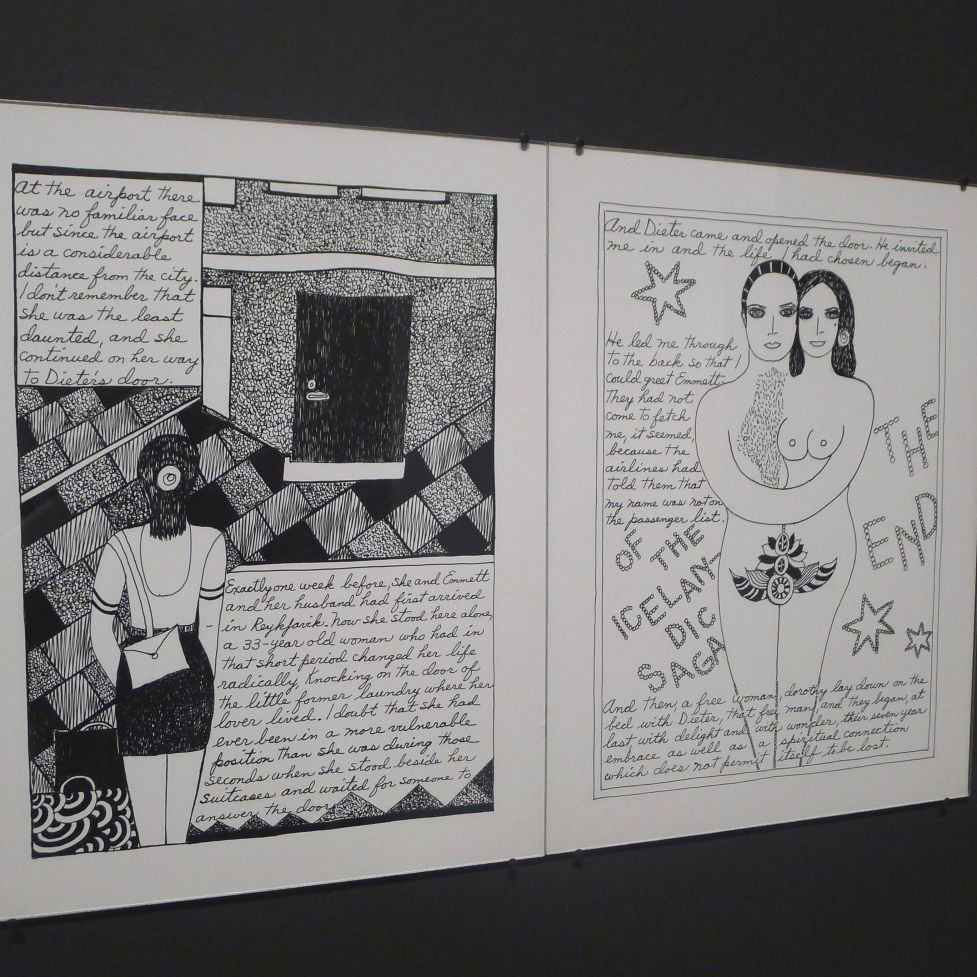 At the airport there
was no familiar face
but since the airport
is a considerable
distance from the city.
I don't remember that
she was the least
daunted, and she
continued on her way
to Dieter's door.
Exactly one week before, she and Emmett
and her husband had first arrived
in Reykjavik. Now she stood here alone,
a 33-year old woman who had in
that short period changed her life
radically, Knocking on the door of
the little former laundry where her
lover lived. I doubt that she had
ever been in a more vulnerable
position than she was during those
seconds when she stood beside her
suitcases and waited for someone to
answer the door.
And Dieter came and opened the door. He invited
me in and the life I had chosen began.
He led me through
to the back so that I
could greet Emmett.
They had not
come to fetch
me, it seemed,
because the
airlines had
told them that
my name was not on
the passenger list.
THE
END
OF
THE
ICELAN-
DIC
SAGA
And Then, a free woman, dorothy lay down on the
bed with Dieter, that free man, and they began, at
last, with delight and with wonder, their seven year
embrace as well as a spiritual connection
which does not permit itself to be lost.